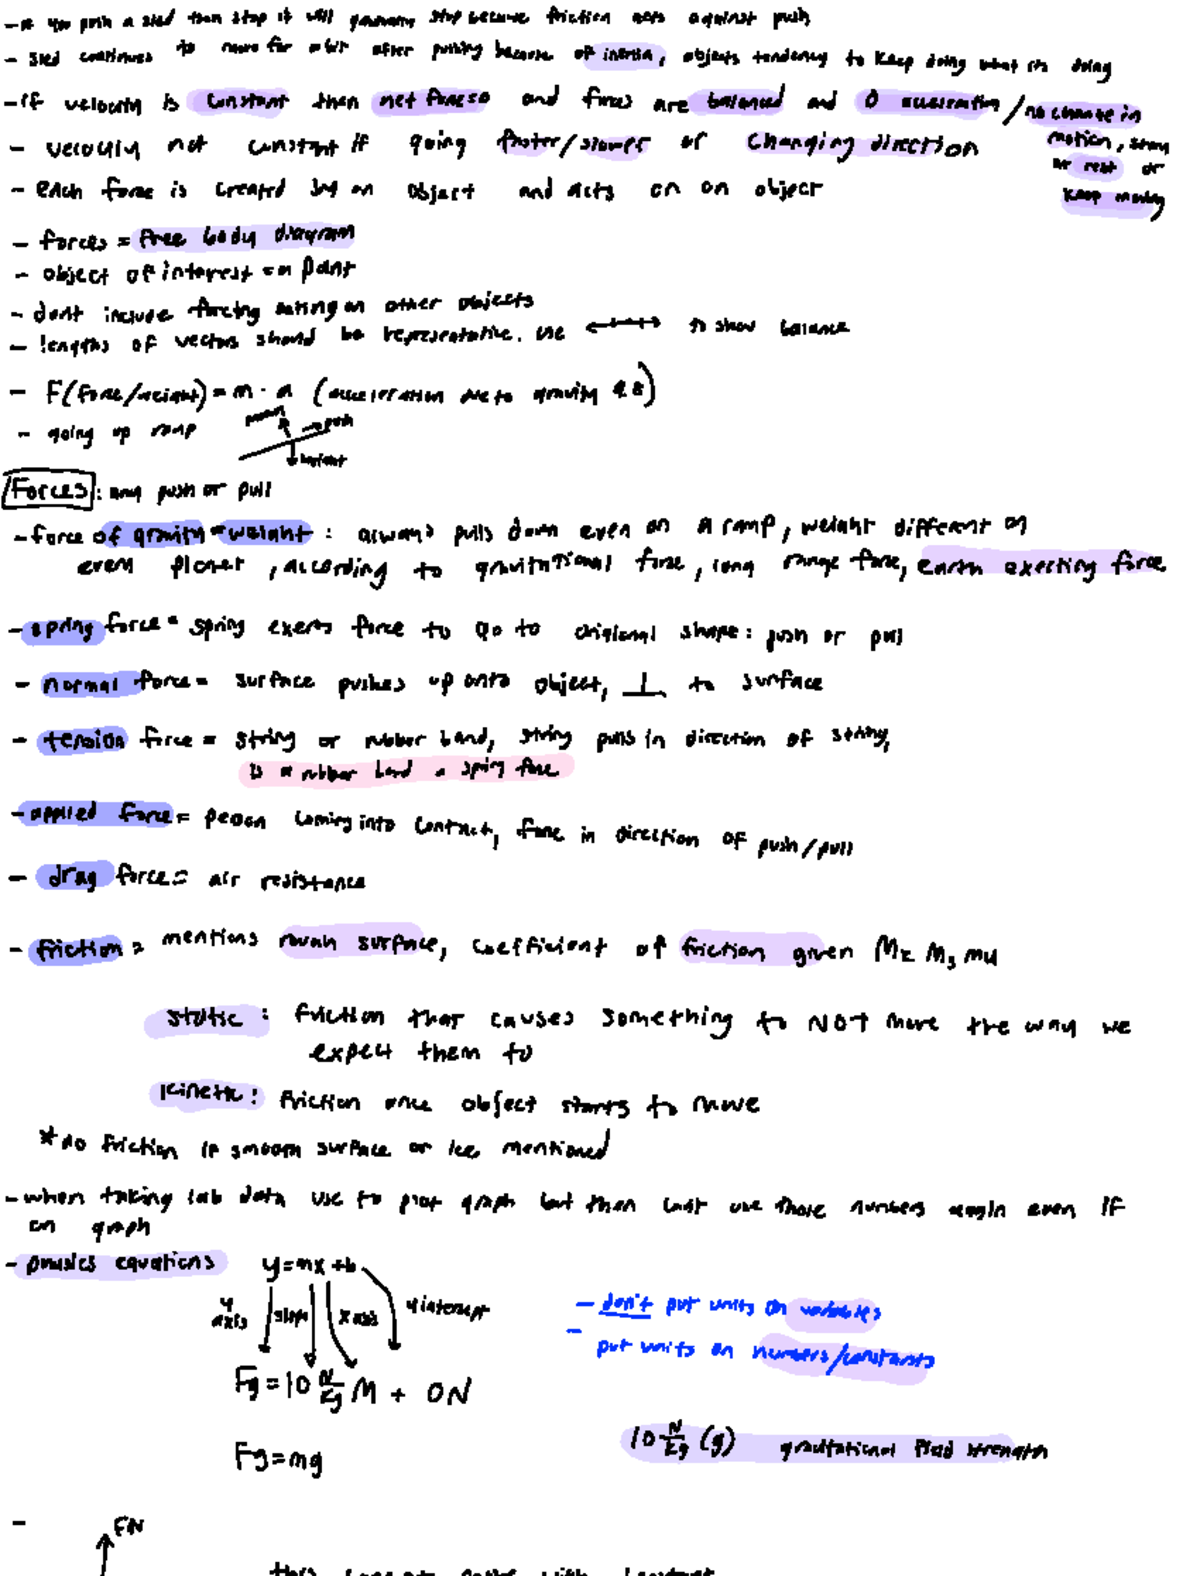 - if you push a sled then stop it will gradually stop because friction acts against push
- sled continues to move for a bit after pushing because of inertia, objects tendency to keep doing what its doing
- if velocity is constant then net force=0 and forces are balanced and 0 acceleration / no change in motion, stay at rest or keep moving
- velocity not constant if going faster/slower or changing direction
- each force is created by an object and acts on an object
- forces = free body diagram
- object of interest = a point
- dont include forcing acting on other objects
- lengths of vectors should be representative. use to show balance
- F(force/weight) = m · a (acceleration due to gravity 9.8)
- going up ramp
push
weight
Forces: any push or pull
- force of gravity = weight : always pulls down even on a ramp, weight different on
every planet, according to gravitational force, long range force, earth exerting force
- spring force = spring exerts force to go to origional shape: push or pull
- normal force = surface pushes up onto object, ⊥ to surface
- tension force = string or rubber band, string pulls in direction of string,
is a rubber band a spring force
- applied force = person coming into contact, force in direction of push/pull
- drag force = air resistance
- friction = mentions rough surface, coefficient of friction given Mk Ms mu
static : friction that causes something to NOT move the way we
expect them to
kinetic : friction once object starts to move
* no friction if smooth surface or ice mentioned
- when taking lab data use to plot graph but then cant use those numbers again even if
on graph
- physics equations y=mx+b
y axis slope x axis y intercept
- don't put units on variables
- put units on numbers/constants
Fg = 10 N/kg M + 0N
10 N/kg (g) gravitational field strength
Fg = mg
-
FN